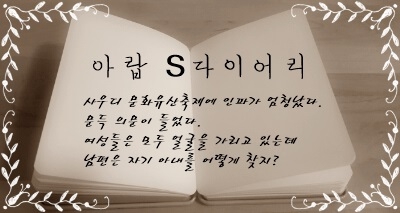 아랍 S다이어리
사우디 문화유산축제에 인파가 엄청났다.
문득 의문이 들었다.
여성들은 모두 얼굴을 가리고 있는데
남편은 자기 아내를 어떻게 찾지?